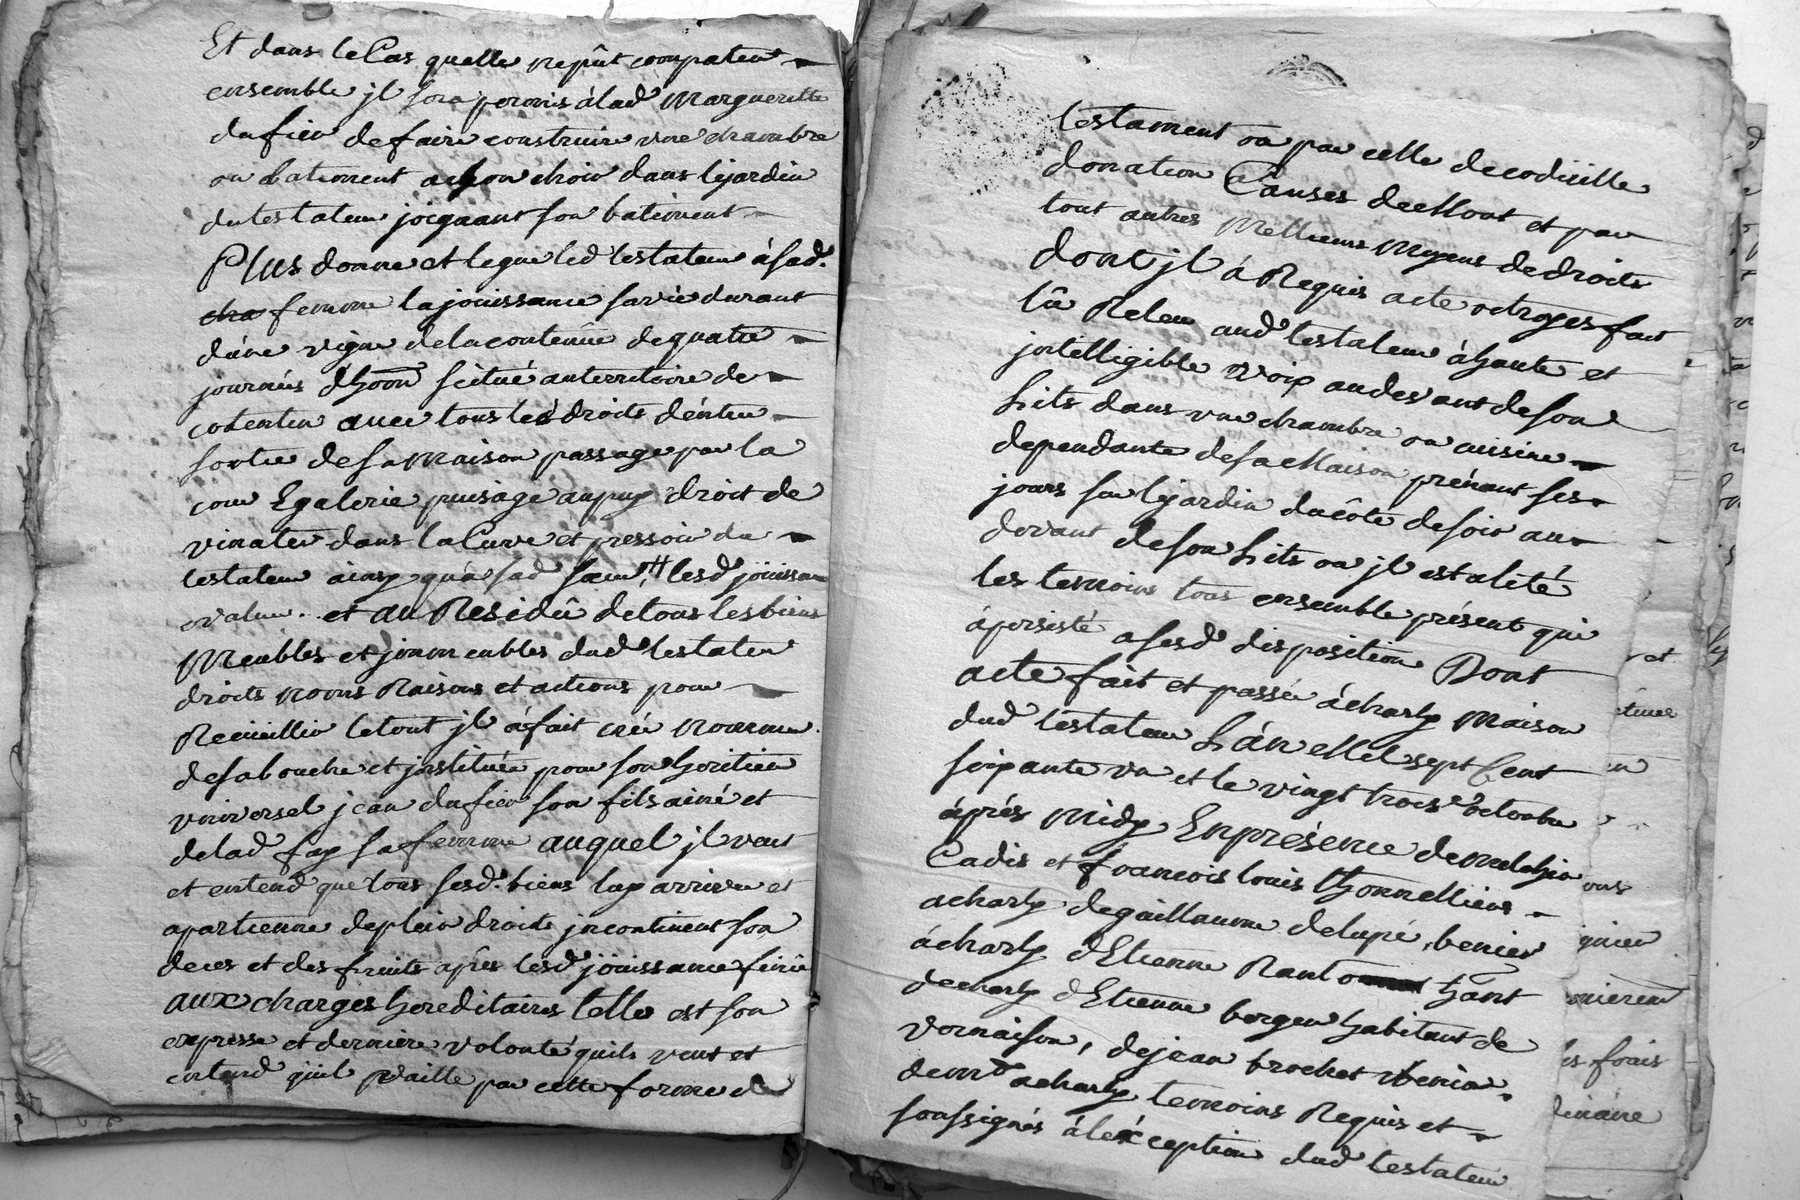 Et dans le Cas quelle ne pût compatir
ensemble jl sera permis à lad. Marguerite
dufieu de faire construire une chambre
ou batiment a son choix dans lejardin
du testateur joignant son batiment
Plus donne et legue led testateur à sad.
femme la jouissance sa vie durant
d'une vigne de la contenüe de quatre
journés dhom scitué au territoire de
cotentin avec tous les droits d'entrer
sortir de sa maison passage par la
cour Egalerie puisage au puy droit de
vinater dans la Cuve et pressoir du
testateur ainsy qu'a sad sœur, # lesd jouissan
valeur. et au Residû de tous les biens
Meubles et jmmeubles dud testateur
droits noms Raisons et actions pour
Recüeillir le tout jl à fait créé nommé
de sa bouche et jnstitué pour son heritier
universel jean dufieu son fils ainé et
de lad fay sa femme auquel jl veut
et entend que tous sesd. biens luy arrive et
apartienne de plein droits jncontinent son
deces et des fruits après lesd jöuissance finie
aux charges hereditaires telle est son
expresse et derniere volonté quil veut et
entend quil vaille par cette forme de
testament ou par celle de codicille
donation Causes de Mort et par
tout autres Mellieurs Moyens de droits
dont jl á Requis acte octroyes fait
lû Releu aud testateur à haute et
jntelligible voix au devant de son
Lits dans une chambre ou cuisine
dependante de sa Maison prénant ses
jours sur lejardin du côte de soir au
devant de son Lits ou jl est alité
les temoins tous ensemble présent qui
à persisté a sesd disposition Dont
acte fait et passé à charly maison
dud testateur L'án Mil sept Cent
soixante un et le vingt trois octobre
après midy En présence de melchior
Cadis et francois louis thonnellier
a charly de guillaume delupé,
à charly d'Etienne Ranto hant
de charly d'Etienne berger habitant de
vernaison, de jean brochet
dem.t a charly temoins Requis et
soussignés à léxception dud testateur
et
les frais